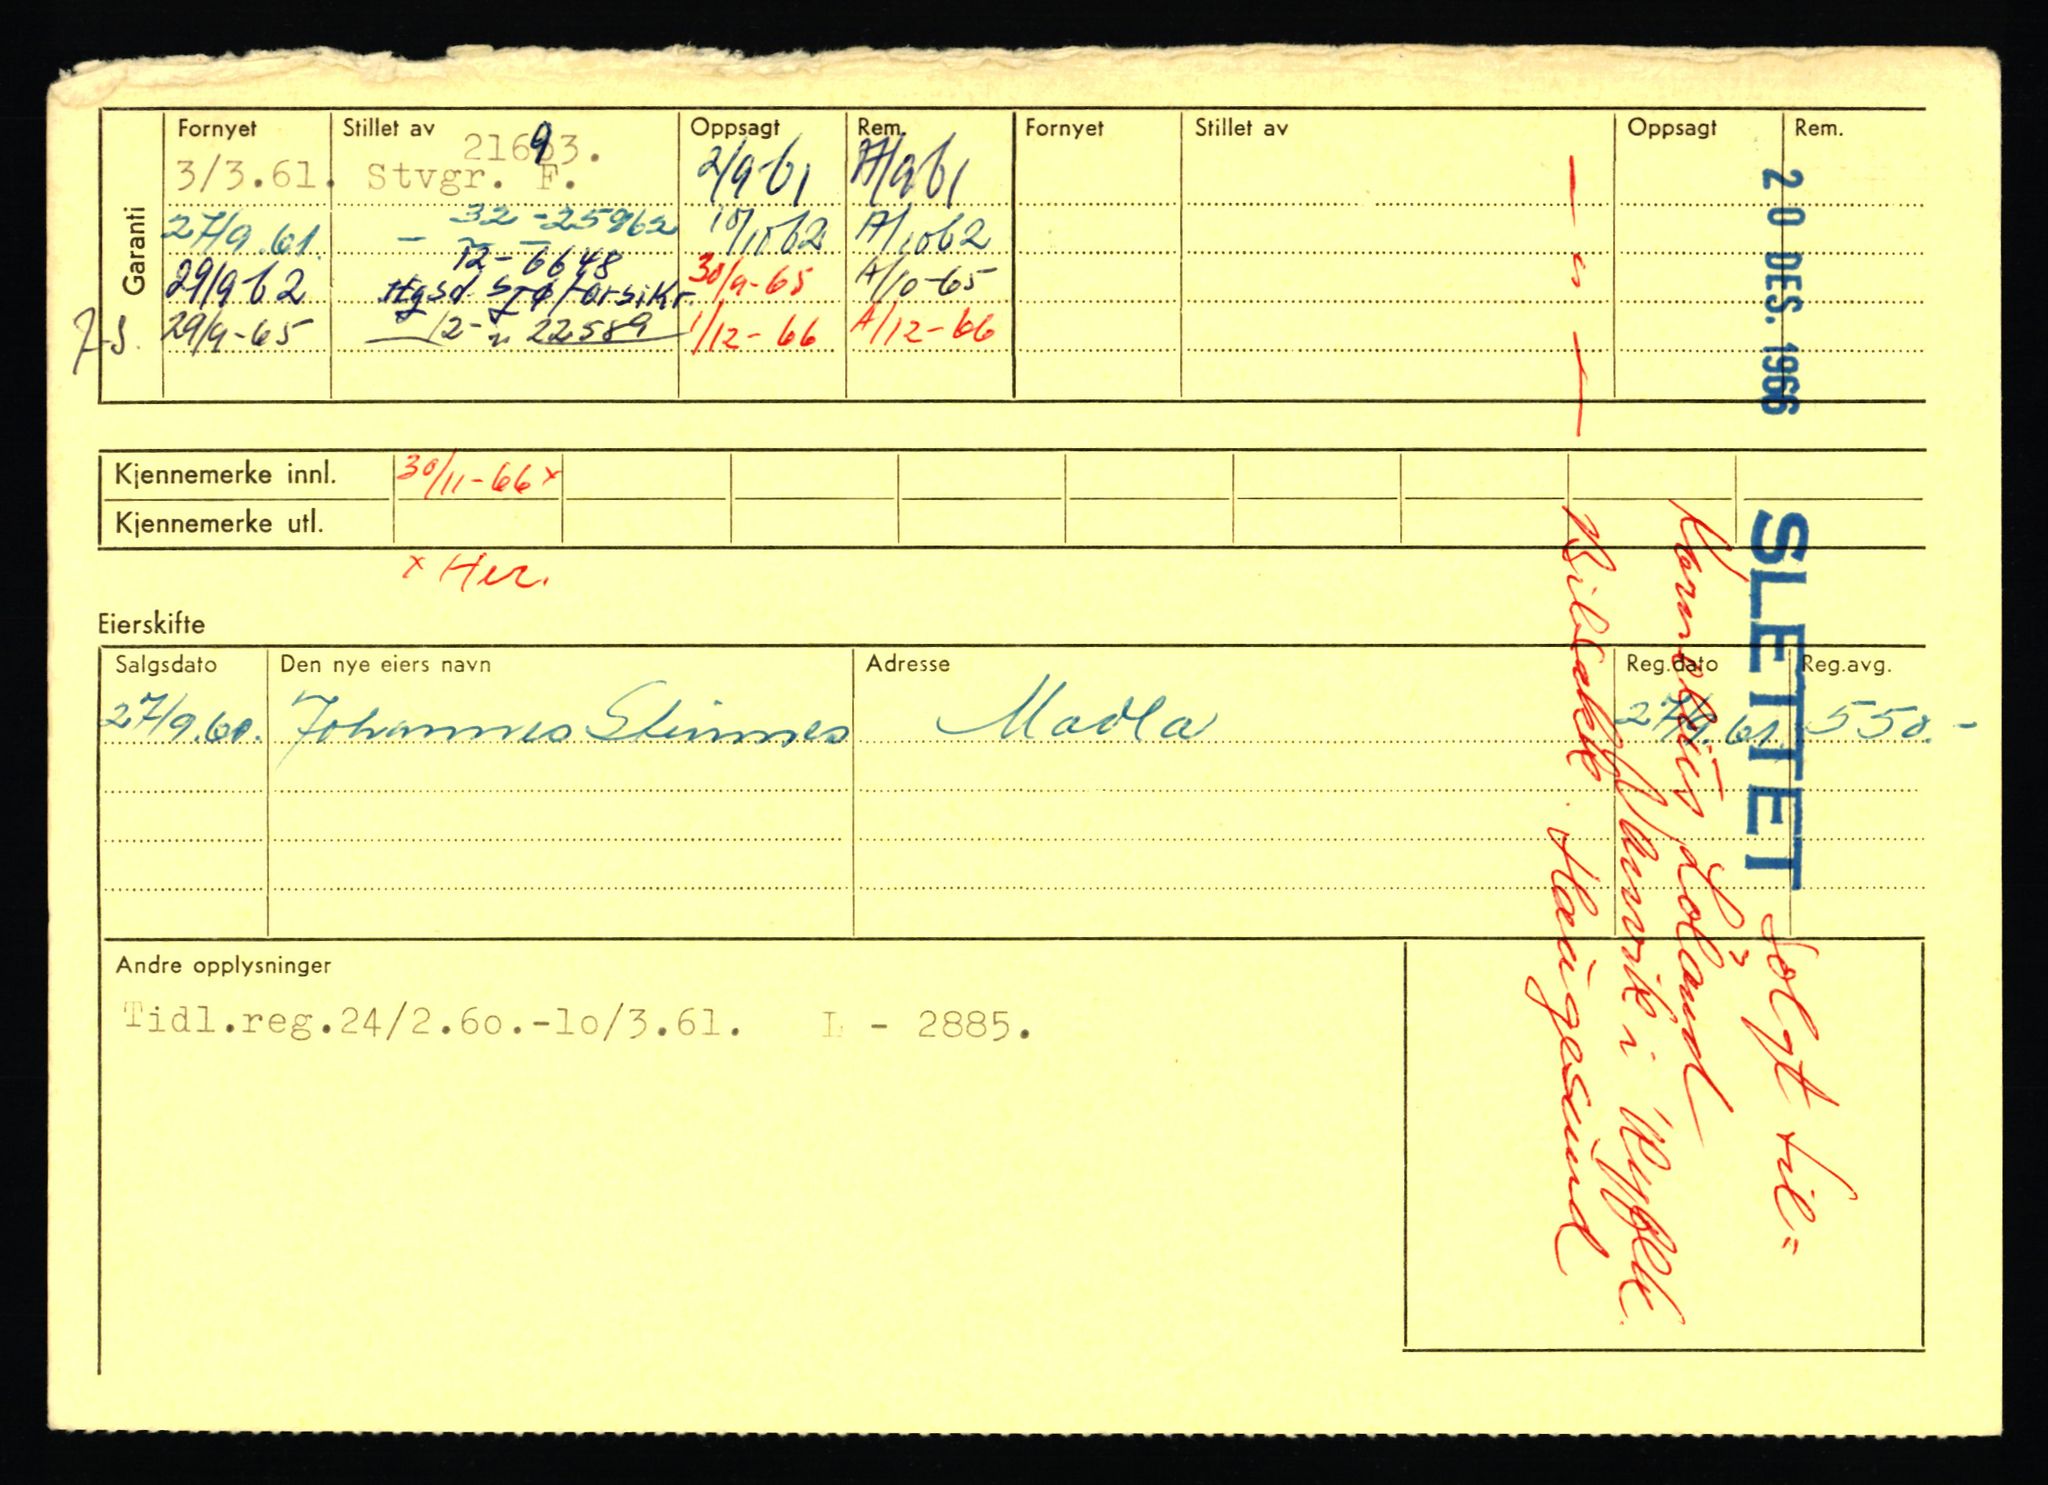 Garanti
Fornyet Stillet av Oppsagt Rem. Fornyet Stillet av Oppsagt Rem.
21693.
3/3.61. Stvgr. F. 2/9-61 A/9 61
27/9.61. - 32 - 25962 10/10 62 A/10 62
12 - 6648
29/9 62 Hgsd Sjøforsikr. 30/9-65 A/10-65
29/9-65 12 - " 22589 1/12-66 A/12-66
20 DES. 1966
Kjennemerke innl. 30/11-66 x
Kjennemerke utl.
x Her.
SLETTET
Solgt til:
Kornelius Loland
i Ryfylke.
Haugesund
Eierskifte
Salgsdato Den nye eiers navn Adresse Reg.dato Reg.avg.
27/9.60. Johannes Steinnes Madla 27/9.61. 550.-
Andre opplysninger
Tidl.reg.24/2.60.-10/3.61. L - 2885.